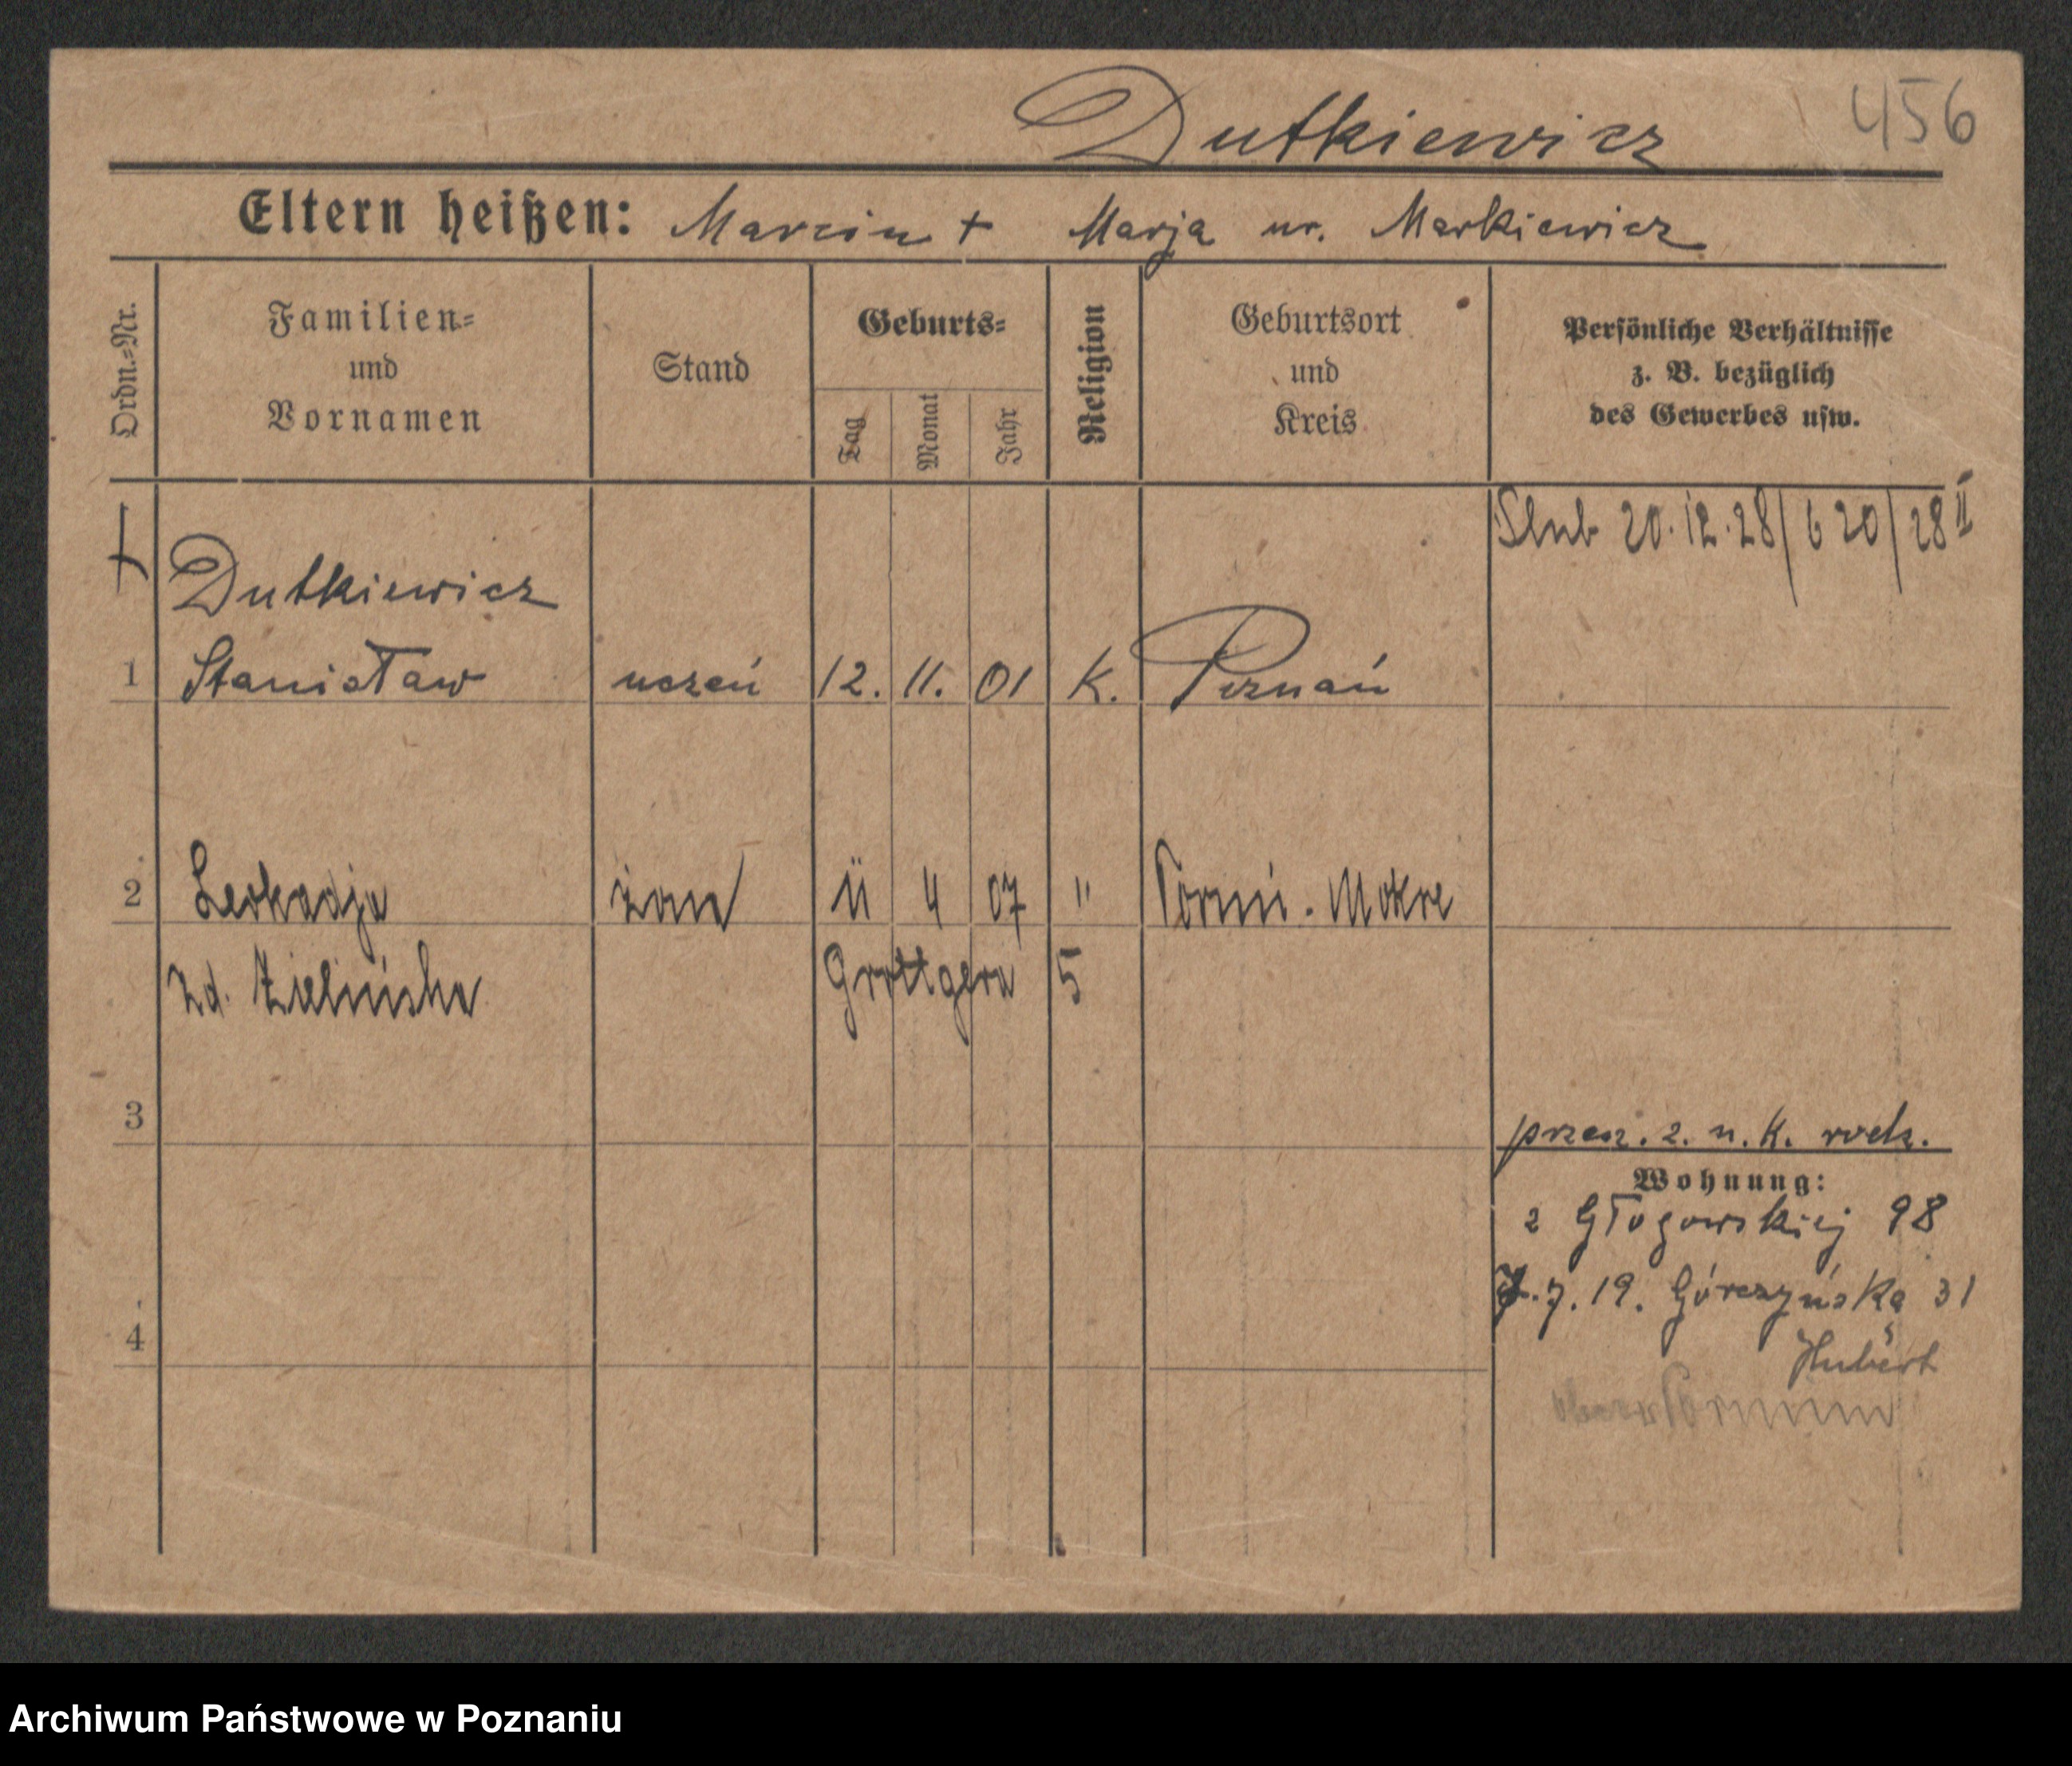 Dutkiewicz 456
Eltern heißen: Marcin + Marja ur. Markiewicz
Ordn.=Nr.
Familien=
und
Vornamen
Stand
Geburts=
Tag
Monat
Jahr
Religion
Geburtsort
und
Kreis
Persönliche Verhältnisse
z. B. bezüglich
des Gewerbes usw.
Slub 20.12.28/620/28 II
Dutkiewicz
1 Stanisław uczeń 12. 11. 01 K. Poznań
2 Leokadja żona 11 4 07 " Toruń. Mokre
zd. Zielińska Grottgera 5
3
przen. z. n. k. rodz.
Wohnung:
z Głogowskiej 98
7. 19. Górczyńska 31
4
Hubert
Archiwum Państwowe w Poznaniu